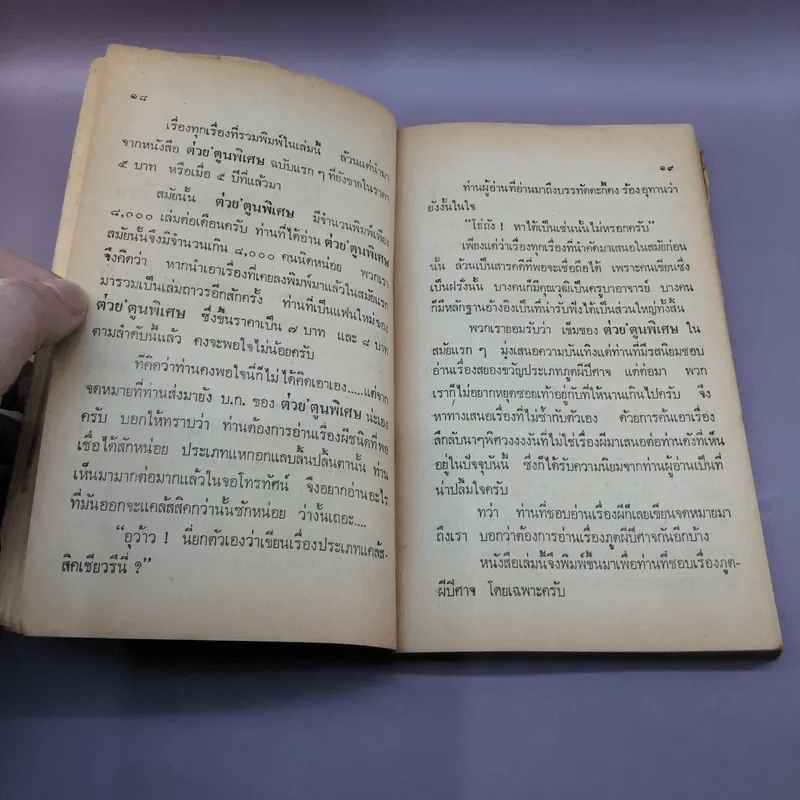 ๑๘
เรื่องทุกเรื่องที่รวมพิมพ์ในเล่มนี้ ล้วนแต่นำมา
จากหนังสือ ต่วย'ตูนพิเศษ ฉบับแรก ๆ ที่ยังขายในราคา
๕ บาท หรือเมื่อ ๕ ปีที่แล้วมา
สมัยนั้น ต่วย'ตูนพิเศษ มีจำนวนพิมพ์เพียง
๘,๐๐๐ เล่มต่อเดือนครับ ท่านที่ได้อ่าน ต่วย'ตูนพิเศษ
สมัยนั้นจึงมีจำนวนเกิน ๘,๐๐๐ คนนิดหน่อย พวกเรา
จึงคิดว่า หากนำเอาเรื่องที่เคยลงพิมพ์มาแล้วในสมัยแรก
มารวมเป็นเล่มถาวรอีกสักครั้ง ท่านที่เป็นแฟนใหม่ของ
ต่วย'ตูนพิเศษ ซึ่งขึ้นราคาเป็น ๗ บาท และ ๘ บาท
ตามลำดับนี้แล้ว คงจะพอใจไม่น้อยครับ
ที่คิดว่าท่านคงพอใจนี่ก็ไม่ได้คิดเอาเอง.....แต่จาก
จดหมายที่ท่านส่งมายัง บ.ก. ของ ต่วย'ตูนพิเศษ น่ะเอง
ครับ บอกให้ทราบว่า ท่านต้องการอ่านเรื่องผีชนิดที่พอ
เชื่อได้สักหน่อย ประเภทแหกอกแลบลิ้นปลิ้นตานั้น ท่าน
เห็นมามากต่อมากแล้วในจอโทรทัศน์ จึงอยากอ่านอะไร
ที่มันออกจะแคลัสสิคกว่านั้นซักหน่อย ว่างั้นเถอะ....
"อุว้าว ! นี่ยกตัวเองว่าเขียนเรื่องประเภทแคลัส-
สิคเชียวรึนี่ ?"
๑๙
ท่านผู้อ่านที่อ่านมาถึงบรรทัดตะกี้คง ร้องอุทานว่า
ยังงั้นในใจ
"โธ่ถัง ! หาได้เป็นเช่นนั้นไม่หรอกครับ"
เพียงแต่ว่าเรื่องทุกเรื่องที่นำคัดมาเสนอในสมัยก่อน
นั้น ล้วนเป็นสารคดีที่พอจะเชื่อถือได้ เพราะคนเขียนซึ่ง
เป็นฝรั่งนั้น บางคนก็มีคุณวุฒิเป็นครูบาอาจารย์ บางคน
ก็มีหลักฐานอ้างอิงเป็นที่น่ารับฟังได้เป็นส่วนใหญ่ทั้งสิ้น
พวกเรายอมรับว่า เข็มของ ต่วย'ตูนพิเศษ ใน
สมัยแรก ๆ มุ่งเสนอความบันเทิงแด่ท่านที่มีรสนิยมชอบ
อ่านเรื่องสยองขวัญประเภทภูตผีปีศาจ แต่ต่อมา พวก
เราก็ไม่อยากหยุดซอยเท้าอยู่กับที่ให้นานเกินไปครับ จึง
หาทางเสนอเรื่องที่ไม่ซ้ำกับตัวเอง ด้วยการค้นเอาเรื่อง
ลึกลับน่าพิศวงงงงันที่ไม่ใช่เรื่องผีมาเสนอต่อท่านดังที่เห็น
อยู่ในปัจจุบันนี้ ซึ่งก็ได้รับความนิยมจากท่านผู้อ่านเป็นที่
น่าปลื้มใจครับ
ทว่า ท่านที่ชอบอ่านเรื่องผีก็เลยเขียนจดหมายมา
ถึงเรา บอกว่าต้องการอ่านเรื่องภูตผีปีศาจกันอีกบ้าง
หนังสือเล่มนี้จึงพิมพ์ขึ้นมาเพื่อท่านที่ชอบเรื่องภูต-
ผีปีศาจ โดยเฉพาะครับ